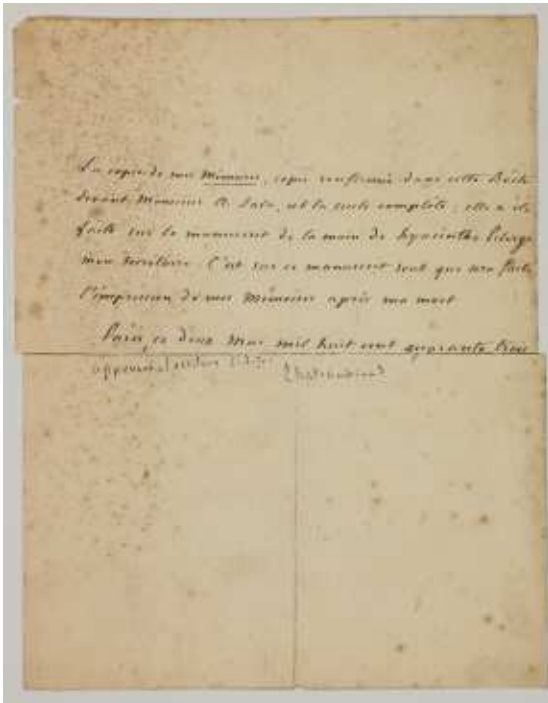 La copie de mes Mémoires, copie renfermée dans cette Boîte
devant Monsieur A. Sala, est la seule complète; elle a été
faite sur le manuscrit de la main de hyacinthe Pilorge
mon secrétaire. C'est sur ce manuscrit seul que sera faite
l'impression de mes Mémoires après ma mort
Paris, ce deux Mars mil huit cent quarante trois
approuvé l'écriture
Chateaubriand